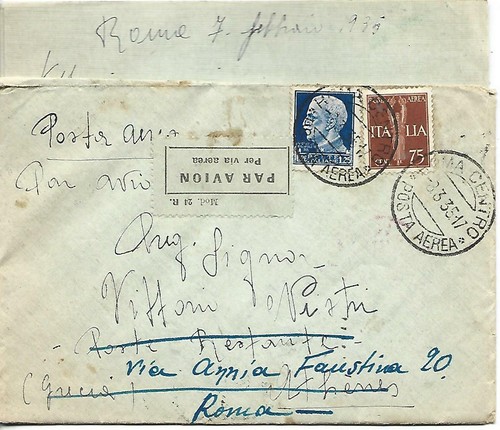 Roma 7 febbraio 1935
Posta aerea
Par avion
PAR AVION
Per via aerea
Mod. 24 R.
1,25
POSTA AEREA
ITALIA
75
ROMA CENTRO
8.3.35.17
* POSTA AEREA *
Ing. Signor
Vittorio
Poste Restante
Via Annia Faustina 20
(Grecia) Athènes
Roma